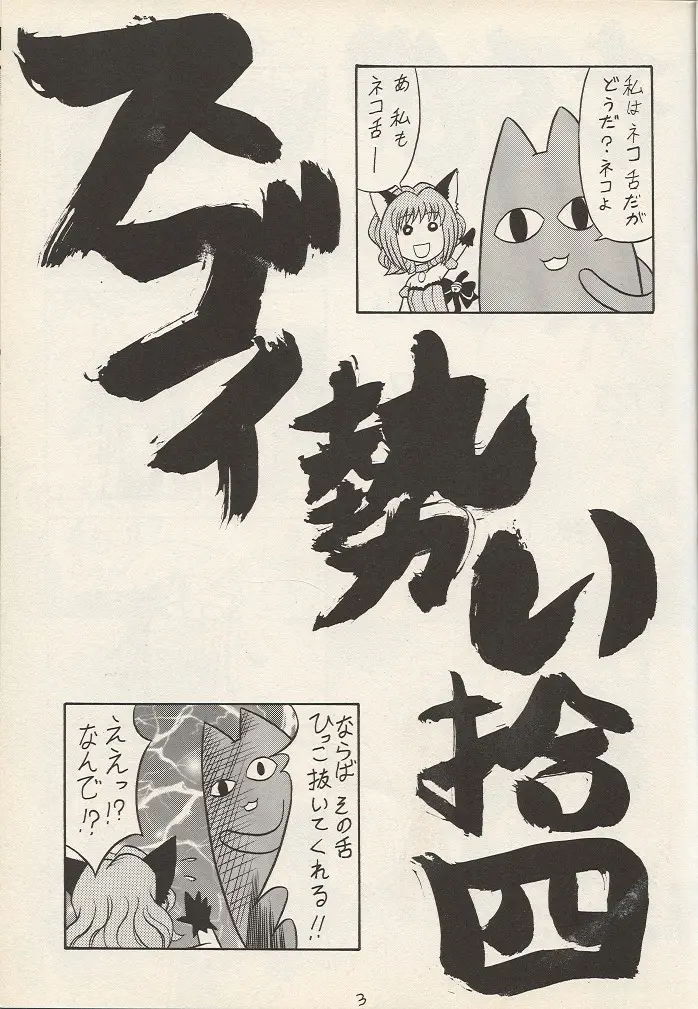 スゴイ
勢い
拾四
私はネコ舌だが
どうだ?ネコよ
あ 私も
ネコ舌ー
ならば その舌
ひっこ抜いてくれる!!
ええっ!?
なんで!?
3